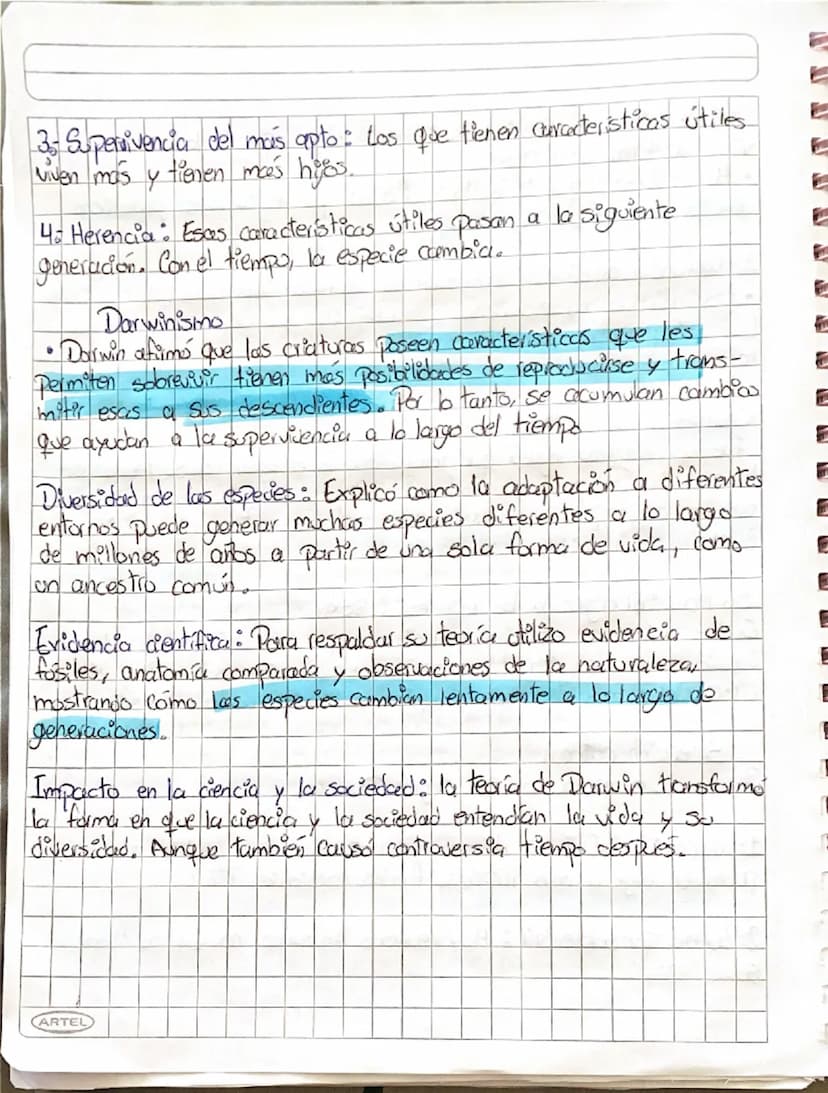 3.- Supervivencia del más apto: Los que tienen características útiles
viven más y tienen más hijos.
4.- Herencia: Esas características útiles pasan a la siguiente
generación. Con el tiempo, la especie cambia.
Darwinismo
• Darwin afirmó que las criaturas poseen características que les
permiten sobrevivir tienen mas posibilidades de reproducirse y trans-
mitir esas a sus descendientes. Por lo tanto, se acumulan cambios
que ayudan a la supervivencia a lo largo del tiempo
Diversidad de las especies: Explicó como la adaptación a diferentes
entornos puede generar muchas especies diferentes a lo largo
de millones de años a partir de una sola forma de vida, como
un ancestro común.
Evidencia científica: Para respaldar su teoría utilizo evidencia de
fósiles, anatomía comparada y observaciones de la naturaleza,
mostrando como las especies cambian lentamente a lo largo de
generaciones.
Impacto en la ciencia y la sociedad: la teoría de Darwin transformó
la forma en que la ciencia y la sociedad entendían la vida y su
diversidad. Aunque también causó controversia tiempo después.
ARTEL